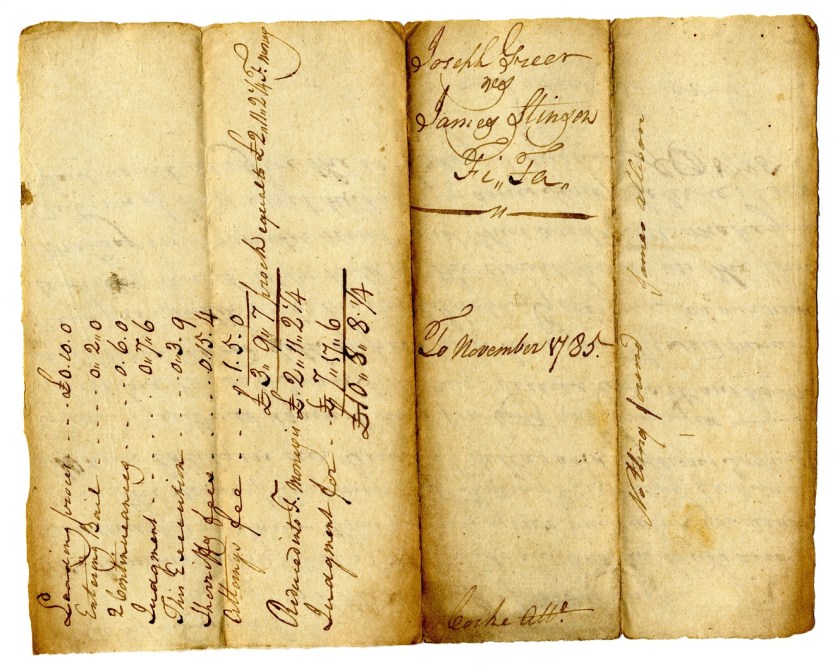 Joseph Greer
vs
James Stinson
Fi,, Fa,,
To November 1785.
Cocke Atto.
Leading process .... £0.10.0
Entering Bail .... 0.,2.,0
2 Continuances .... 0.6.0
Judgment .... 0.,7.,6
This Execution .... 0.3.9
Sheriffs fees .... 0.15.4
Attorneys fee .... 1.5.0
£3,,9,,7 procla equal to £2,,11,,2 1/4 F. money
Reduced into F. Money is £2,,11,,2 1/4
Judgment for .... £7,,17,,6
£10,,8,,8 1/4
Nothing found James Allison